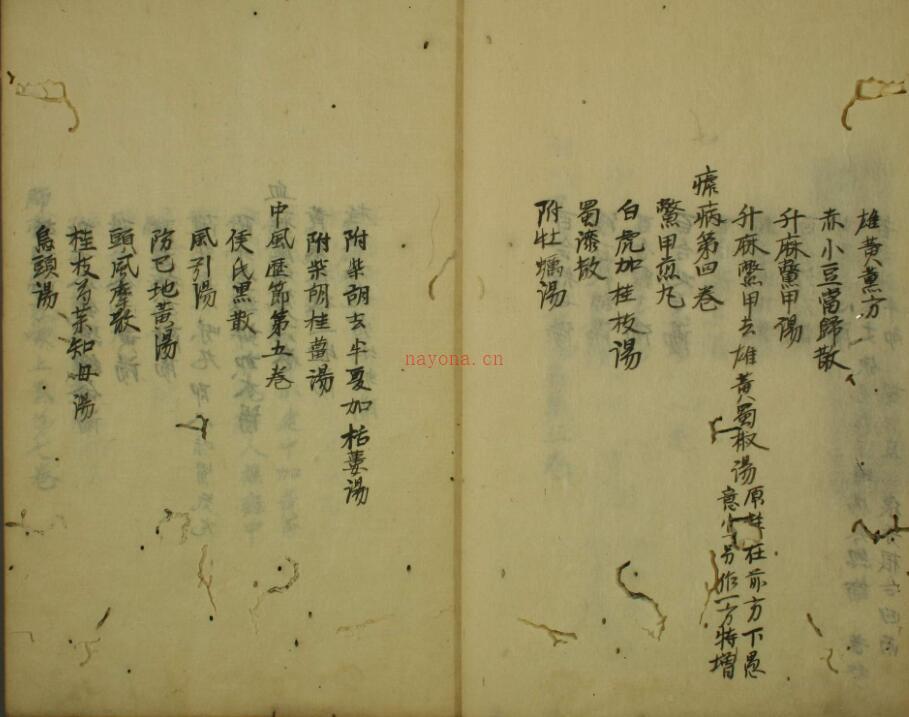 雄黃薰方
赤小豆當歸散
升麻鱉甲湯
升麻鱉甲去雄黃蜀椒湯 原葉在前方下愚意當另作一方特增
瘧病第四卷
鱉甲煎丸
白虎加桂枝湯
蜀漆散
附牡蠣湯
附柴胡去半夏加栝蔞湯
附柴胡桂薑湯
中風歷節第五卷
侯氏黑散
風引湯
防己地黃湯
頭風摩散
桂枝芍藥知母湯
烏頭湯
nayona.cn